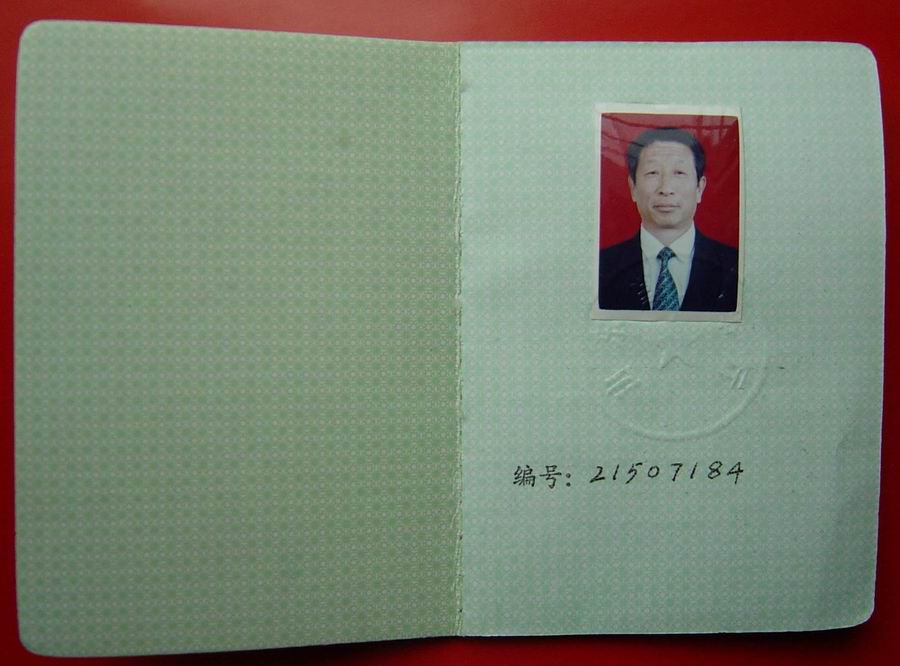 编号：21507184